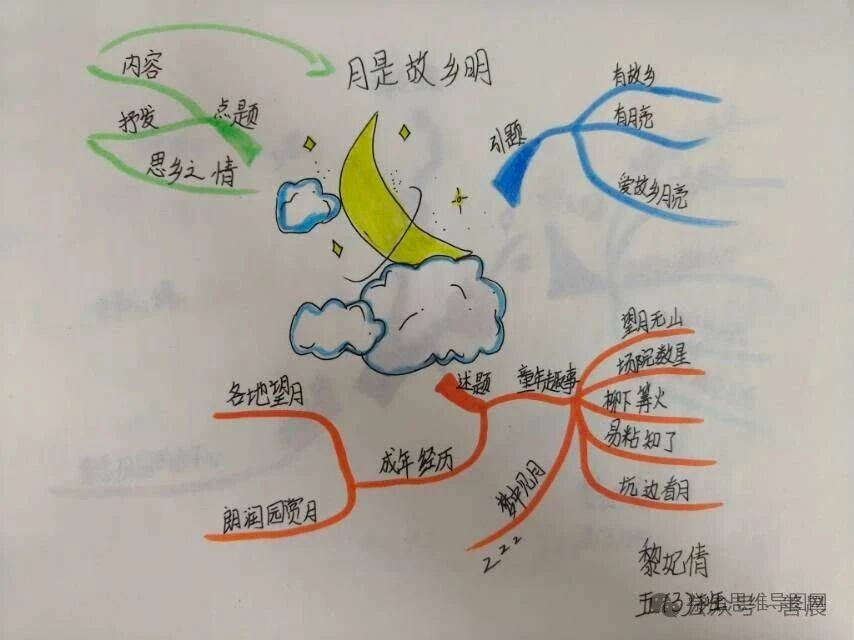 月是故乡明
内容
抒发
点题
思乡之情
引题
有故乡
有月亮
爱故乡月亮
述题
童年趣事
望月无山
场院数星
柳下篝火
易粘知了
坑边看月
梦中见月
zzz
成年经历
各地望月
朗润园赏月
黎妃倩
五(3)班
公众号
思维导图网